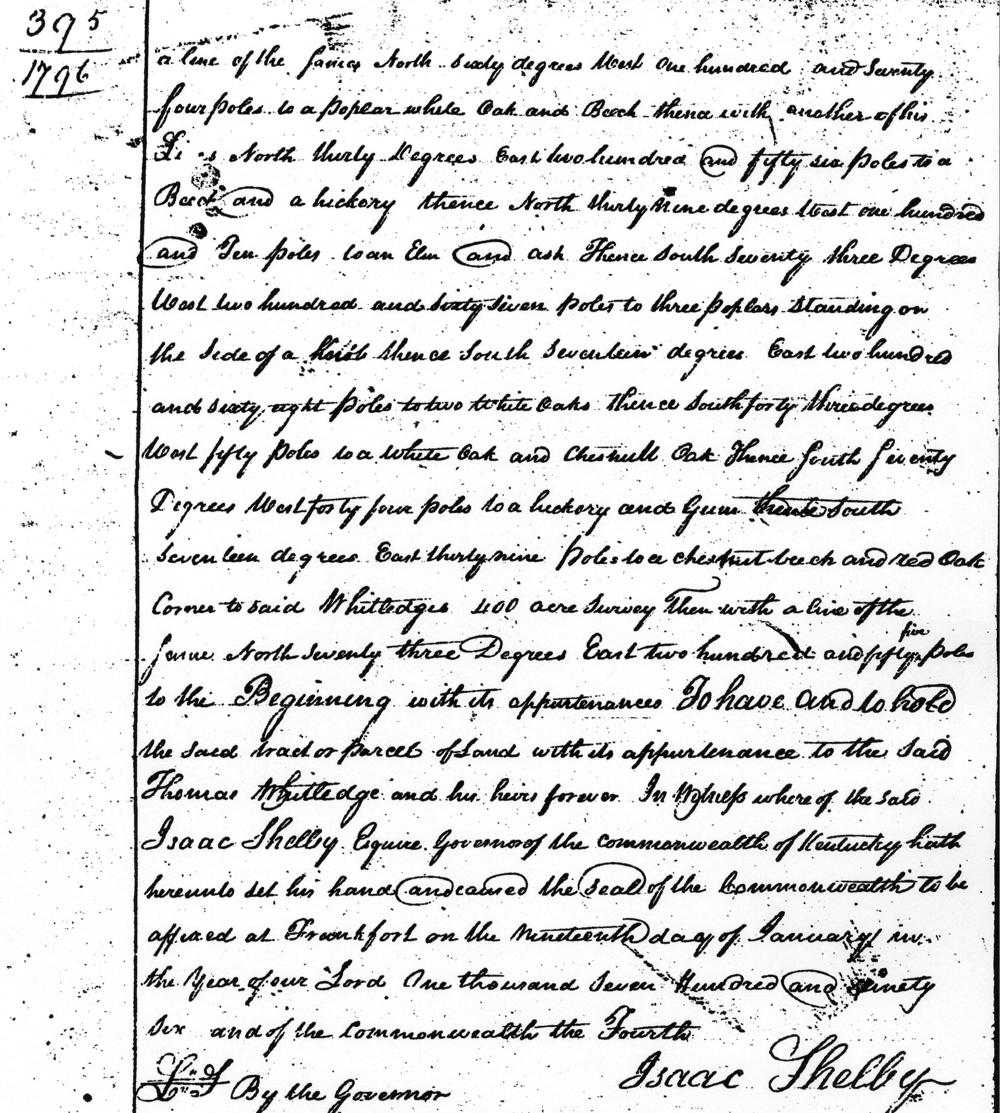 395
1796
a line of the same North Sixty degrees West One hundred and Seventy
four poles to a poplar white Oak and Beech thence with another of his
North thirty Degrees East two hundred and fifty six poles to a
Beech and a hickory thence North thirty Nine degrees West one hundred
and Ten poles to an Elm and ash Thence South Seventy three Degrees
West two hundred and Sixty Seven poles to three poplars Standing on
the Side of a Knob thence South Seventeen degrees East two hundred
and Sixty eight Poles to two White Oaks thence South forty three degrees
West fifty Poles to a White Oak and Chesnutt Oak Thence South Seventy
Degrees West forty four poles to a hickory and Gum thence South
Seventeen degrees East thirty nine Poles to a chesnut beech and red Oak
Corner to said Whitledges 400 acre Survey Then with a line of the
same North Seventy three Degrees East two hundred and fifty five Poles
to the Beginning with its appurtenances To have and to hold
the said tract or parcel of Land with its appurtenance to the said
Thomas Whitledge and his heirs forever In Witness where of the said
Isaac Shelby Esquire Governor of the commonwealth of Kentucky hath
hereunto set his hand and caused the Seal of the Commonwealth to be
affixed at Frankfort on the Nineteenth day of January in
the Year of our Lord One thousand Seven Hundred and Ninety
Six and of the Commonwealth the Fourth
L"S By the Governor Isaac Shelby